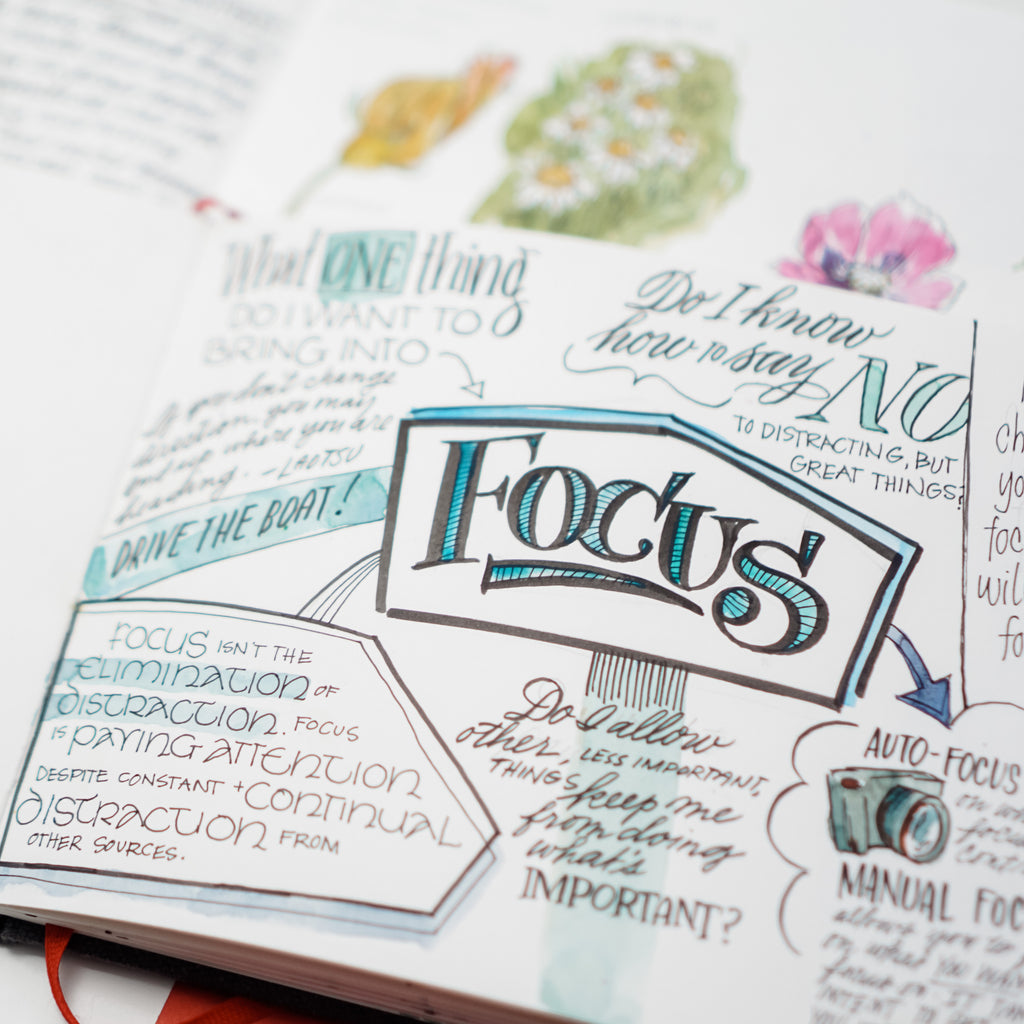 What ONE thing
DO I WANT TO
BRING INTO
If you don't change
direction, you may
end up where you are
heading. - LAOTSU
DRIVE THE BOAT!
Do I know
how to say
NO
TO DISTRACTING, BUT
GREAT THINGS?
FOCUS
FOCUS ISN'T THE
ELIMINATION OF
DISTRACTION. FOCUS
IS PAYING ATTENTION
DESPITE CONSTANT + CONTINUAL
DISTRACTION FROM
OTHER SOURCES.
Do I allow
other, LESS IMPORTANT,
THINGS keep me
from doing
what's
IMPORTANT?
ch
yo
foc
will
fo
AUTO-FOCUS
on
focus
MANUAL FOC
allows you to
on what YOU
focus on. IT
INTENT